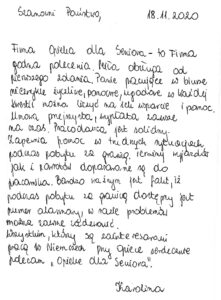 Szanowni Państwo, 18.11.2020
Firma Opieka dla Seniora - to Firma
godna polecenia. Miła obsługa od
pierwszego zdania. Panie pracujące w biurze
niezwykle życzliwe, pomocne, w każdej
kwestii można liczyć na ich wsparcie i pomoc.
Umowa przejrzysta, wypłata zawsze
na czas. Pracodawca jest solidny.
Zapewnia pomoc w trudnych sytuacjach
podczas pobytu za granicą. Terminy wyjazdów
jak i powrotów dopasowane są do
pracownika. Bardzo ważnym jest fakt, iż
podczas pobytu za granicą dostępny jest
numer alarmowy, w razie problemu
można zawsze zadzwonić.
Wszystkim, którzy są zainteresowani
pracą w Niemczech przy opiece serdecznie
polecam „Opiekę dla Seniora".
Karolina